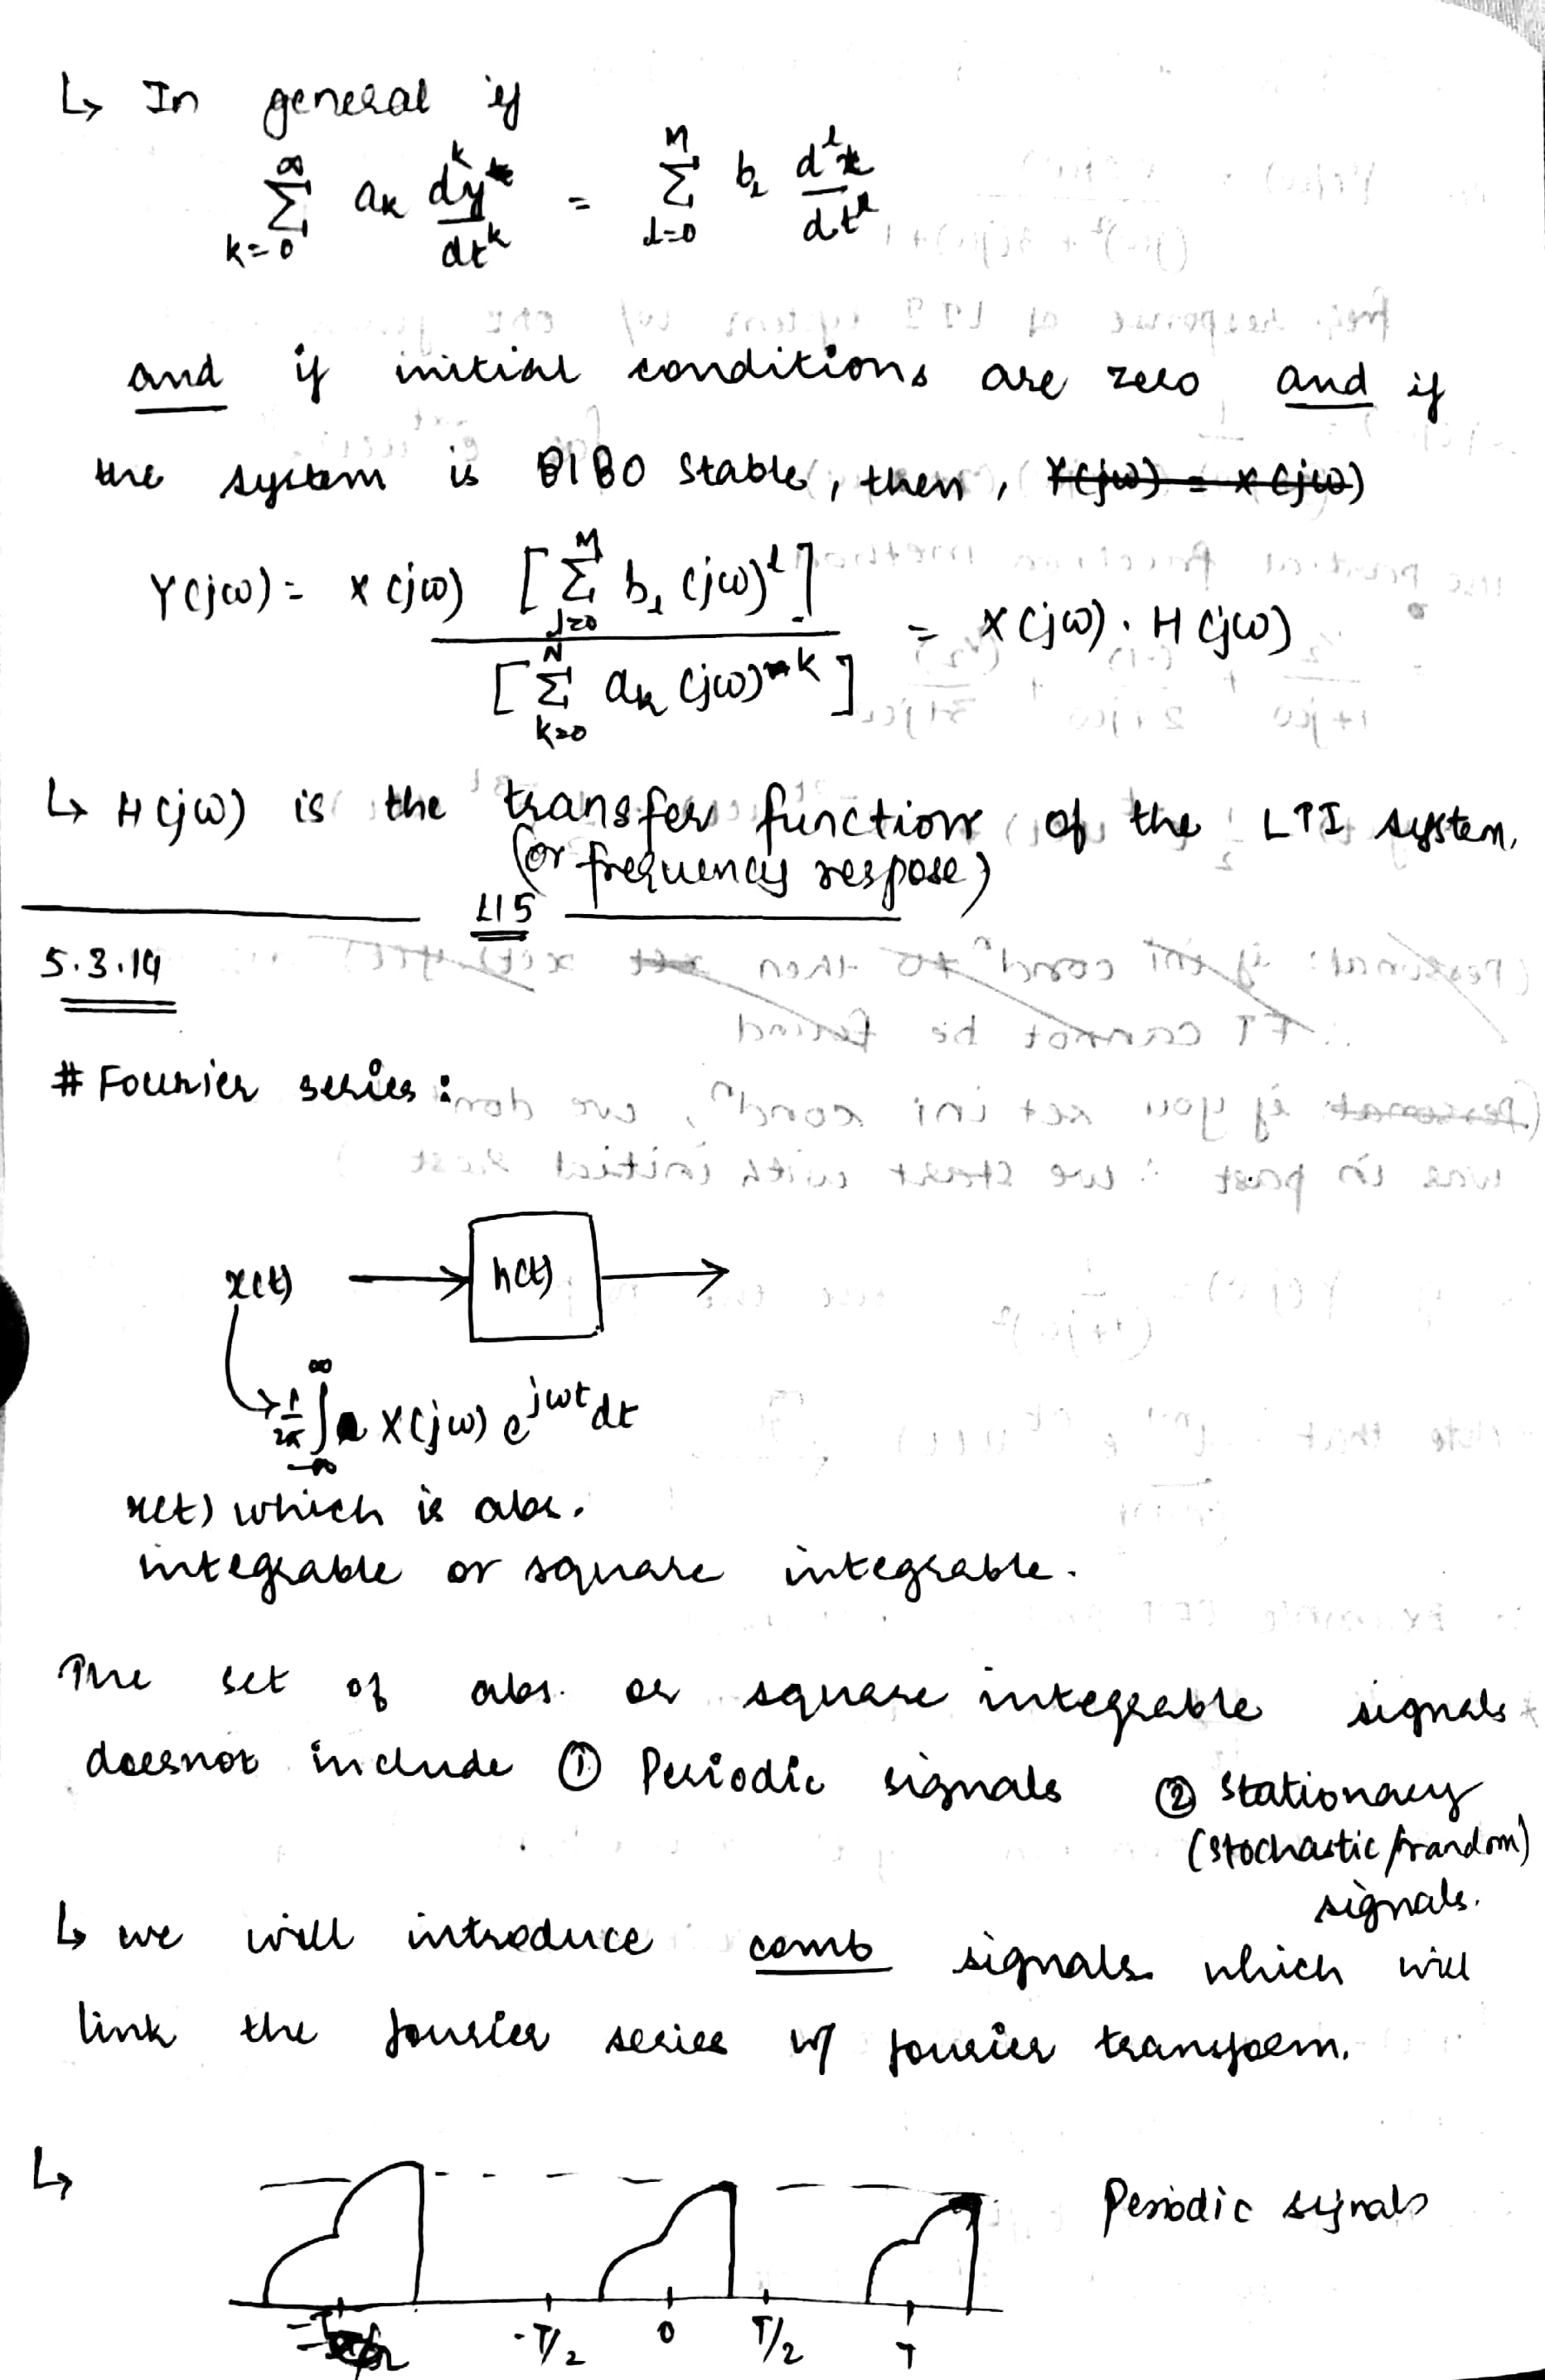 ↳ In general if
∞ Σ k=0 aₖ dᵏy/dtᵏ = M Σ l=0 bₗ dˡx/dtˡ
and if initial conditions are zero and if
the system is BIBO stable, then, Y(jω) = X(jω)
Y(jω) = X(jω) [M Σ l=0 bₗ (jω)ˡ] / [N Σ k=0 aₖ (jω)ᵏ] = X(jω) . H(jω)
↳ H(jω) is the transfer function of the LTI system.
(or frequency respose)
L15
5.3.19
# Fourier series:
x(t) → h(t) →
1/2π ∫ -∞ ∞ X(jω) e^jωt dt
x(t) which is abs.
integrable or square integrable.
The set of abs. or square integrable signals
doesnot include ① Periodic signals ② Stationary
(stochastic/random)
signals.
↳ we will introduce comb signals which will
link the fourier series w/ fourier transform.
↳ Periodic signals
-T/2 0 T/2 T